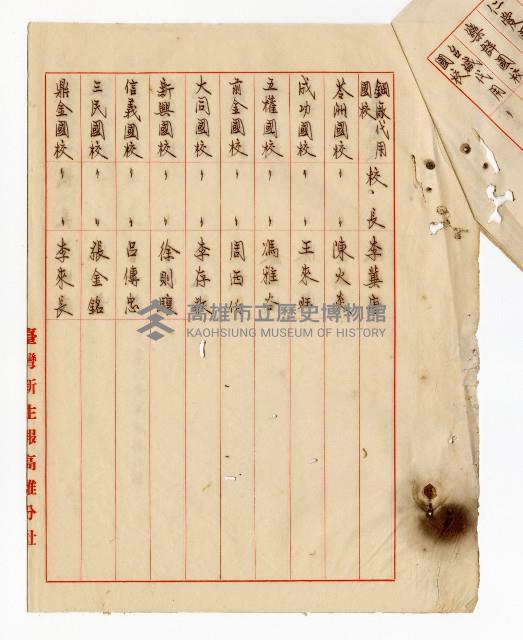 鋼廠代用國校 校長 李冀
苓洲國校 〃 〃 陳火
成功國校 〃 〃 王來旺
五權國校 〃 〃 馮雅
前金國校 〃 〃 周西
大同國校 〃 〃 李存
新興國校 〃 〃 徐則
信義國校 〃 〃 呂傳忠
三民國校 〃 〃 張金銘
鼎金國校 〃 〃 李來長
臺灣新生報高雄分社
高雄市立歷史博物館
KAOHSIUNG MUSEUM OF HISTORY
樂群國校
台鹼代用國校